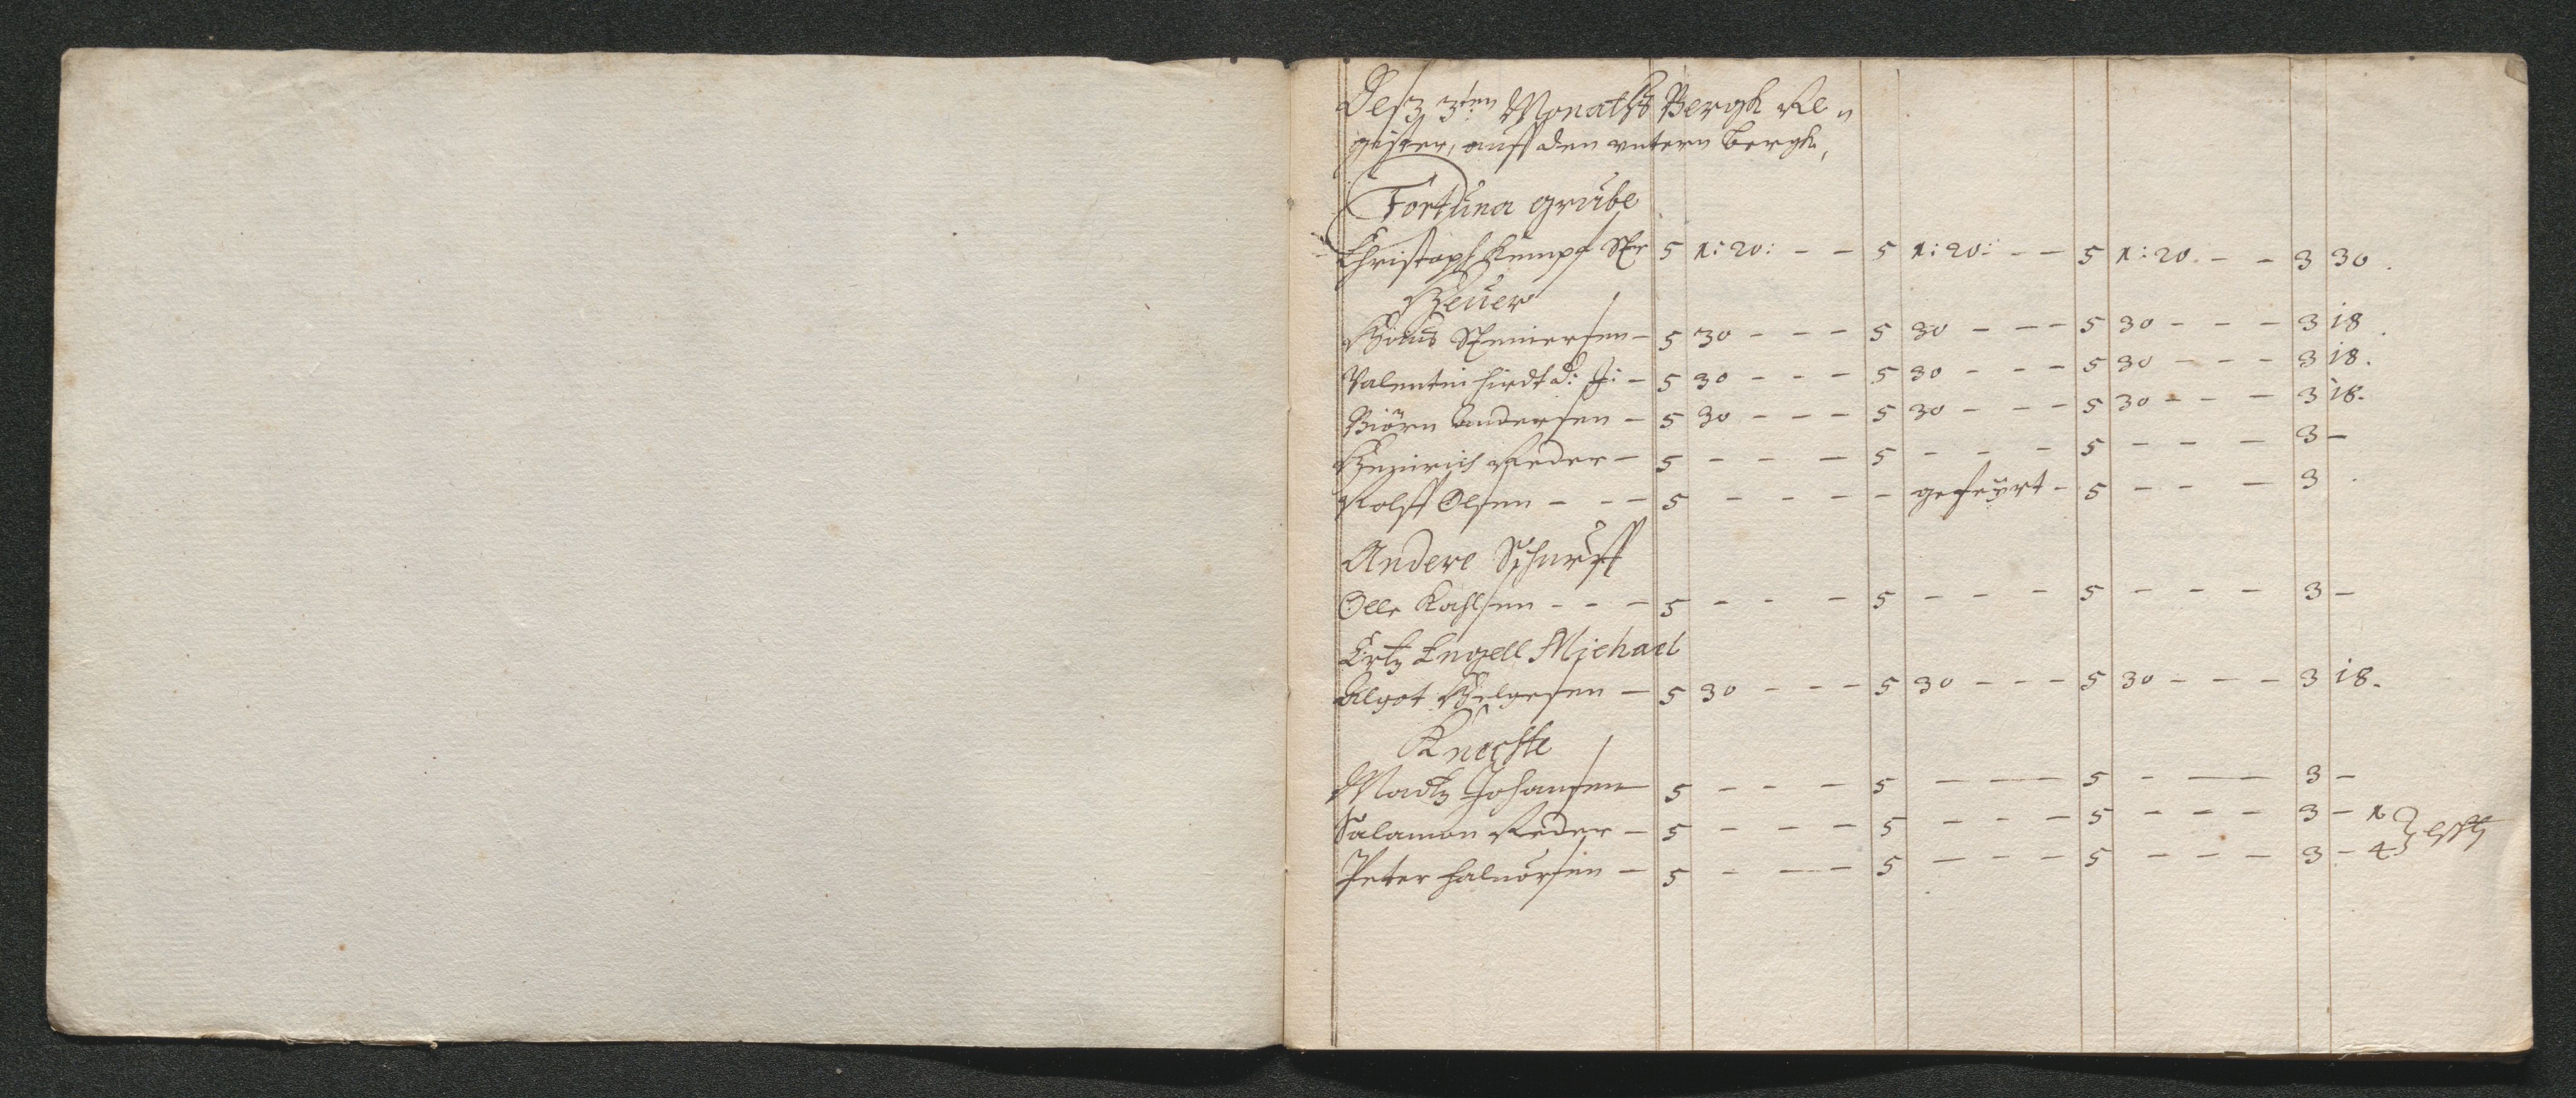 Desz 3ten Monatsz Bergk Re„
gister, auff den untern bergk,
Fortuna grube
Christoph Kempf Str 5 1:20: - - 5 1:20: - - 5 1:20. - - 3 30.
Heuer
Steinersen - 5 30 - - - 5 30 - - - 5 30 - - - 3 18.
Valentin hirdt d: J: - 5 30 - - - 5 30 - - - 5 30 - - - 3 18.
Biörn Andersen - 5 30 - - - 5 30 - - - 5 30 - - - 3 18.
Heinrich Reder - 5 - - - 5 - - - 5 - - - 3 -
Rolff Olsen - - - 5 - - - - gefeyrt - 5 - - - 3 .
Andere Schurff
Olle Kahlsen - - - 5 - - - 5 - - - 5 - - - 3 -
Ertz Engell Michael
Algot Helgesen - 5 30 - - - 5 30 - - - 5 30 - - - 3 18.
Knechte
Madtz Johansen 5 - - - 5 - - - 5 - - - 3 -
Salamon Reder - 5 - - - 5 - - - 5 - - - 3 - 1
Peter halvorsen - 5 - - - 5 - - - 5 - - - 3 - 4